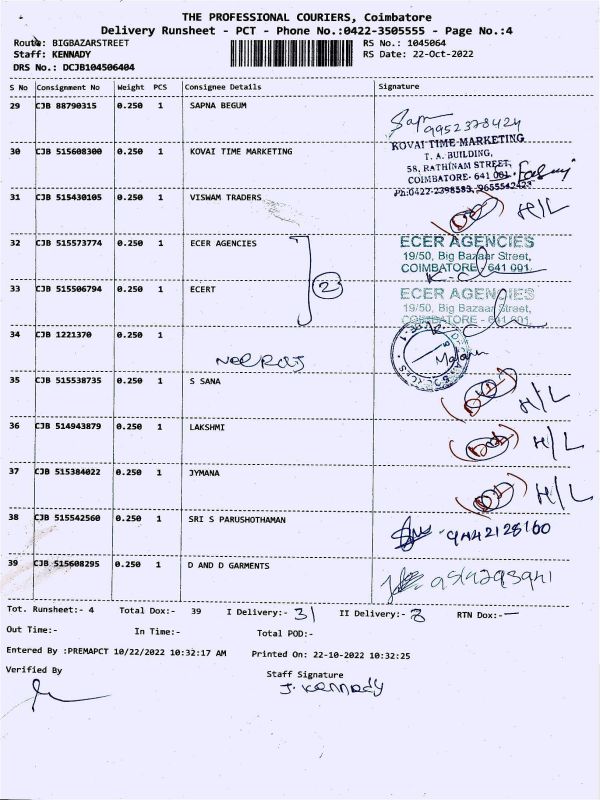 THE PROFESSIONAL COURIERS, Coimbatore
Delivery Runsheet - PCT - Phone No.:0422-3505555 - Page No.:4
Route: BIGBAZARSTREET RS No.: 1045064
Staff: KENNADY RS Date: 22-Oct-2022
DRS No.: DCJB104506404
S No Consignment No Weight PCS Consignee Details Signature
29 CJB 88790315 0.250 1 SAPNA BEGUM
9952378424
30 CJB 515608300 0.250 1 KOVAI TIME MARKETING
KOVAI TIME MARKETING
T. A. BUILDING,
58, RATHINAM STREET,
COIMBATORE- 641 001.
Ph:0422-2398583, 9655542423
31 CJB 515430105 0.250 1 VISWAM TRADERS H/L
32 CJB 515573774 0.250 1 ECER AGENCIES
ECER AGENCIES
19/50, Big Bazaar Street,
COIMBATORE - 641 001.
2
33 CJB 515506794 0.250 1 ECERT
ECER AGENCIES
19/50, Big Bazaar Street,
COIMBATORE - 641 001.
34 CJB 1221370 0.250 1
NEERAJ
35 CJB 515538735 0.250 1 S SANA H/L
36 CJB 514943879 0.250 1 LAKSHMI H/L
37 CJB 515384022 0.250 1 JYMANA H/L
38 CJB 515542560 0.250 1 SRI S PARUSHOTHAMAN
39 CJB 515608295 0.250 1 D AND D GARMENTS
Tot. Runsheet:- 4 Total Dox:- 39 I Delivery:- 31 II Delivery:- 8 RTN Dox:- —
Out Time:- In Time:- Total POD:-
Entered By :PREMAPCT 10/22/2022 10:32:17 AM Printed On: 22-10-2022 10:32:25
Verified By Staff Signature
J. Kennady